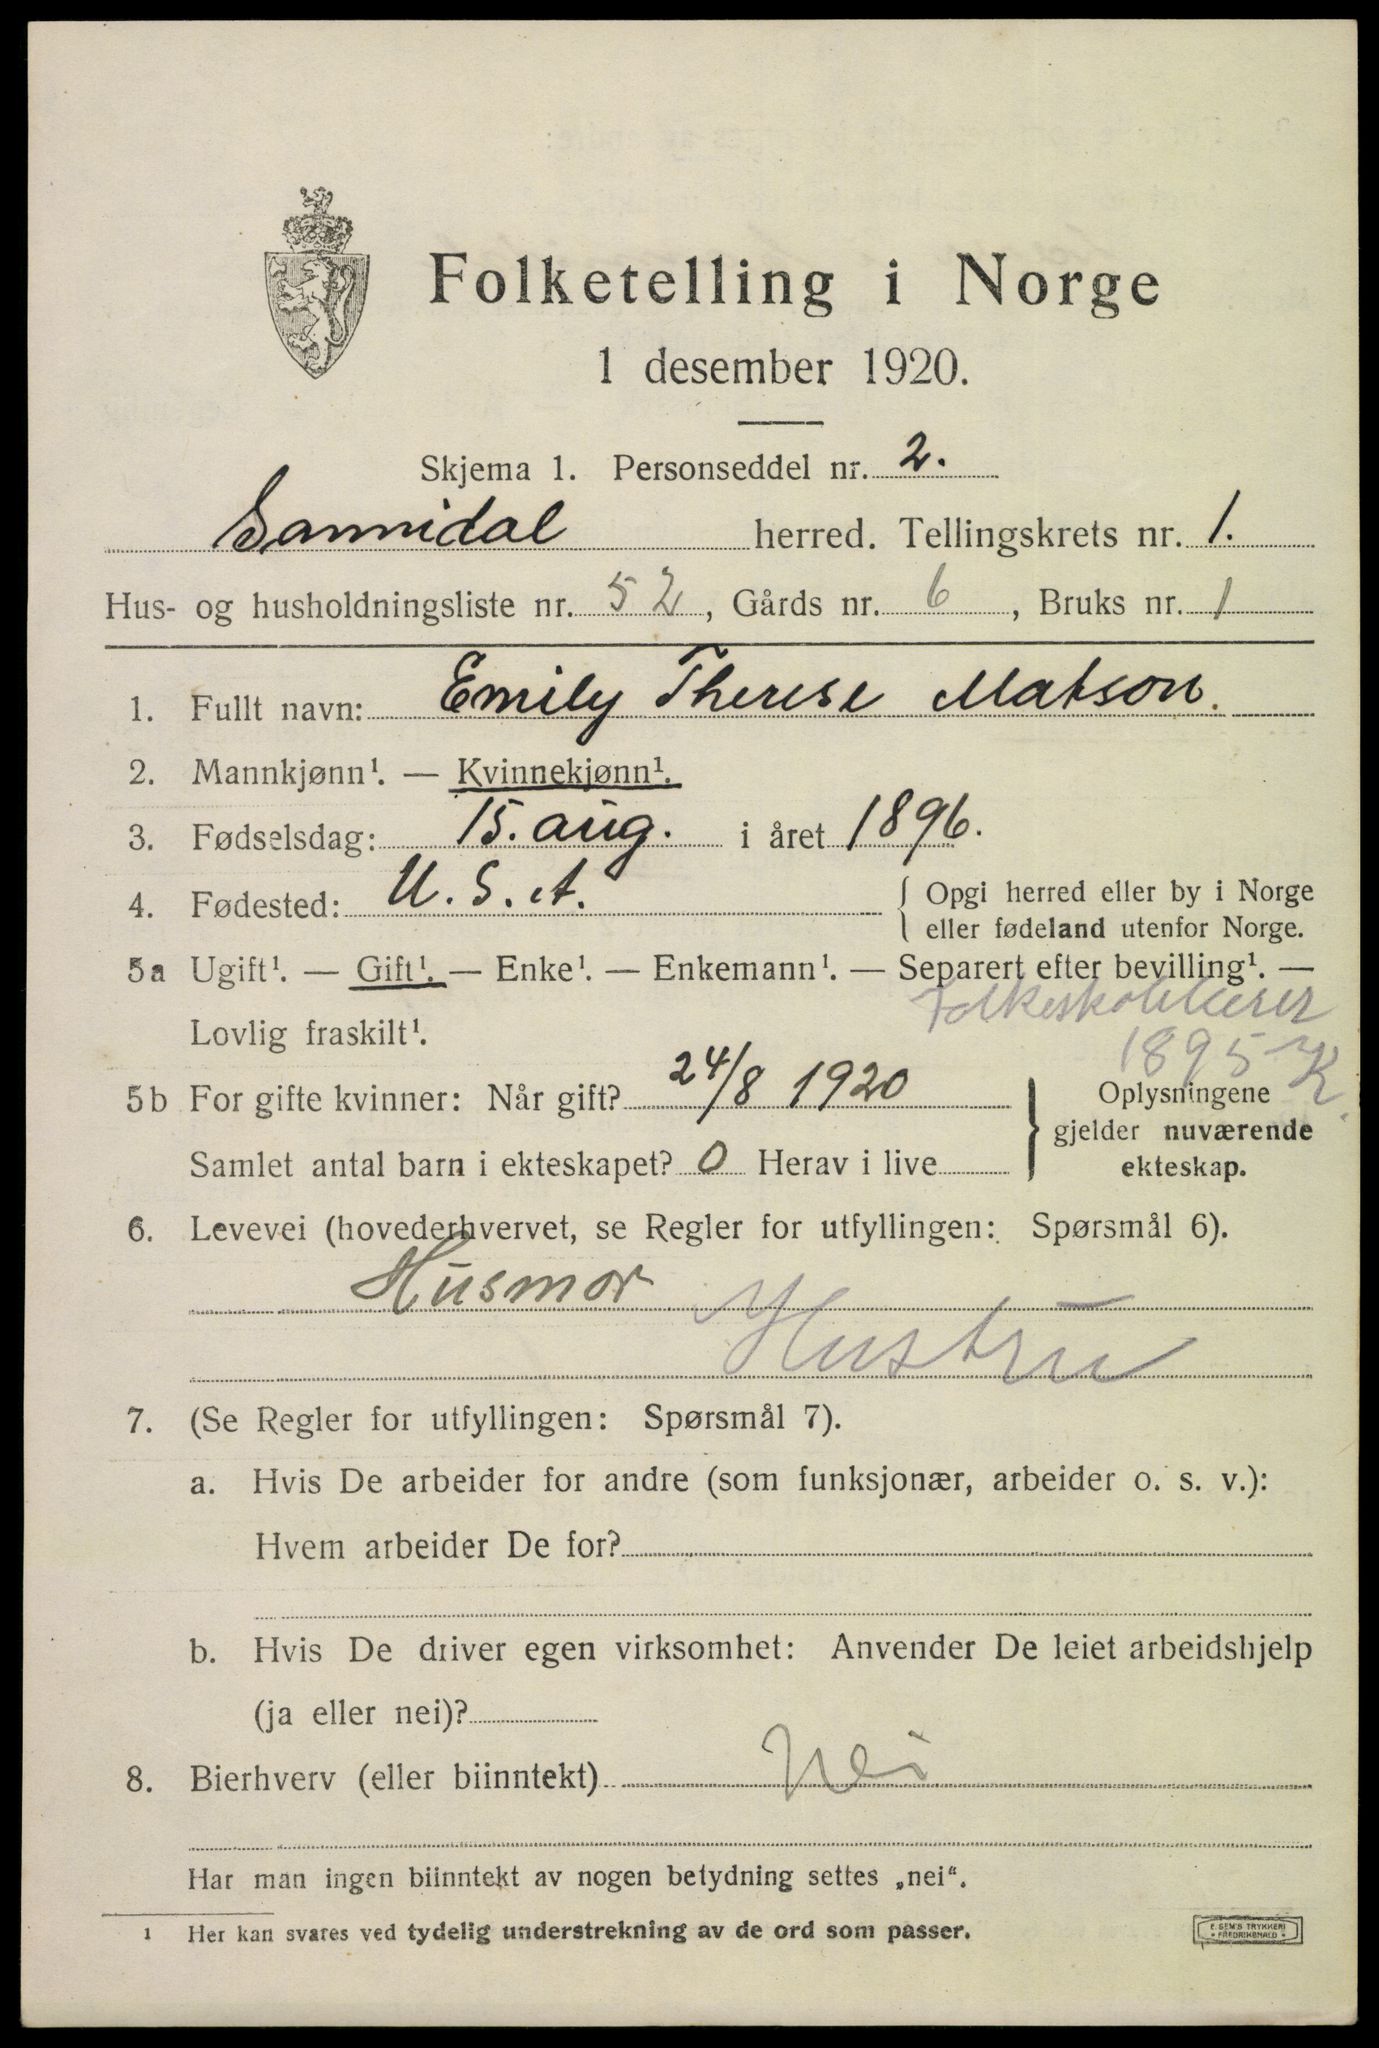 Folketelling i Norge
1 desember 1920.
Skjema 1. Personseddel nr. 2.
Sannidal herred. Tellingskrets nr. 1.
Hus- og husholdningsliste nr. 52, Gårds nr. 6, Bruks nr. 1
1. Fullt navn: Emily Therese Matson.
2. Mannkjønn¹. — Kvinnekjønn¹.
3. Fødselsdag: 15. aug. i året 1896.
4. Fødested: U. S. A. { Opgi herred eller by i Norge
eller fødeland utenfor Norge.
5a Ugift¹. — Gift¹. — Enke¹. — Enkemann¹. — Separert efter bevilling¹. —
Lovlig fraskilt¹.
1895 K.
5b For gifte kvinner: Når gift? 24/8 1920 } Oplysningene
gjelder nuværende
Samlet antal barn i ekteskapet? 0 Herav i live
ekteskap.
6. Levevei (hovederhvervet, se Regler for utfyllingen: Spørsmål 6).
Husmor
Hustru
7. (Se Regler for utfyllingen: Spørsmål 7).
a. Hvis De arbeider for andre (som funksjonær, arbeider o. s. v.):
Hvem arbeider De for?
b. Hvis De driver egen virksomhet: Anvender De leiet arbeidshjelp
(ja eller nei)?
8. Bierhverv (eller biinntekt) Nei
Har man ingen biinntekt av nogen betydning settes „nei“.
1 Her kan svares ved tydelig understrekning av de ord som passer.
E. SEM'S TRYKKERI
FREDRIKSHALD